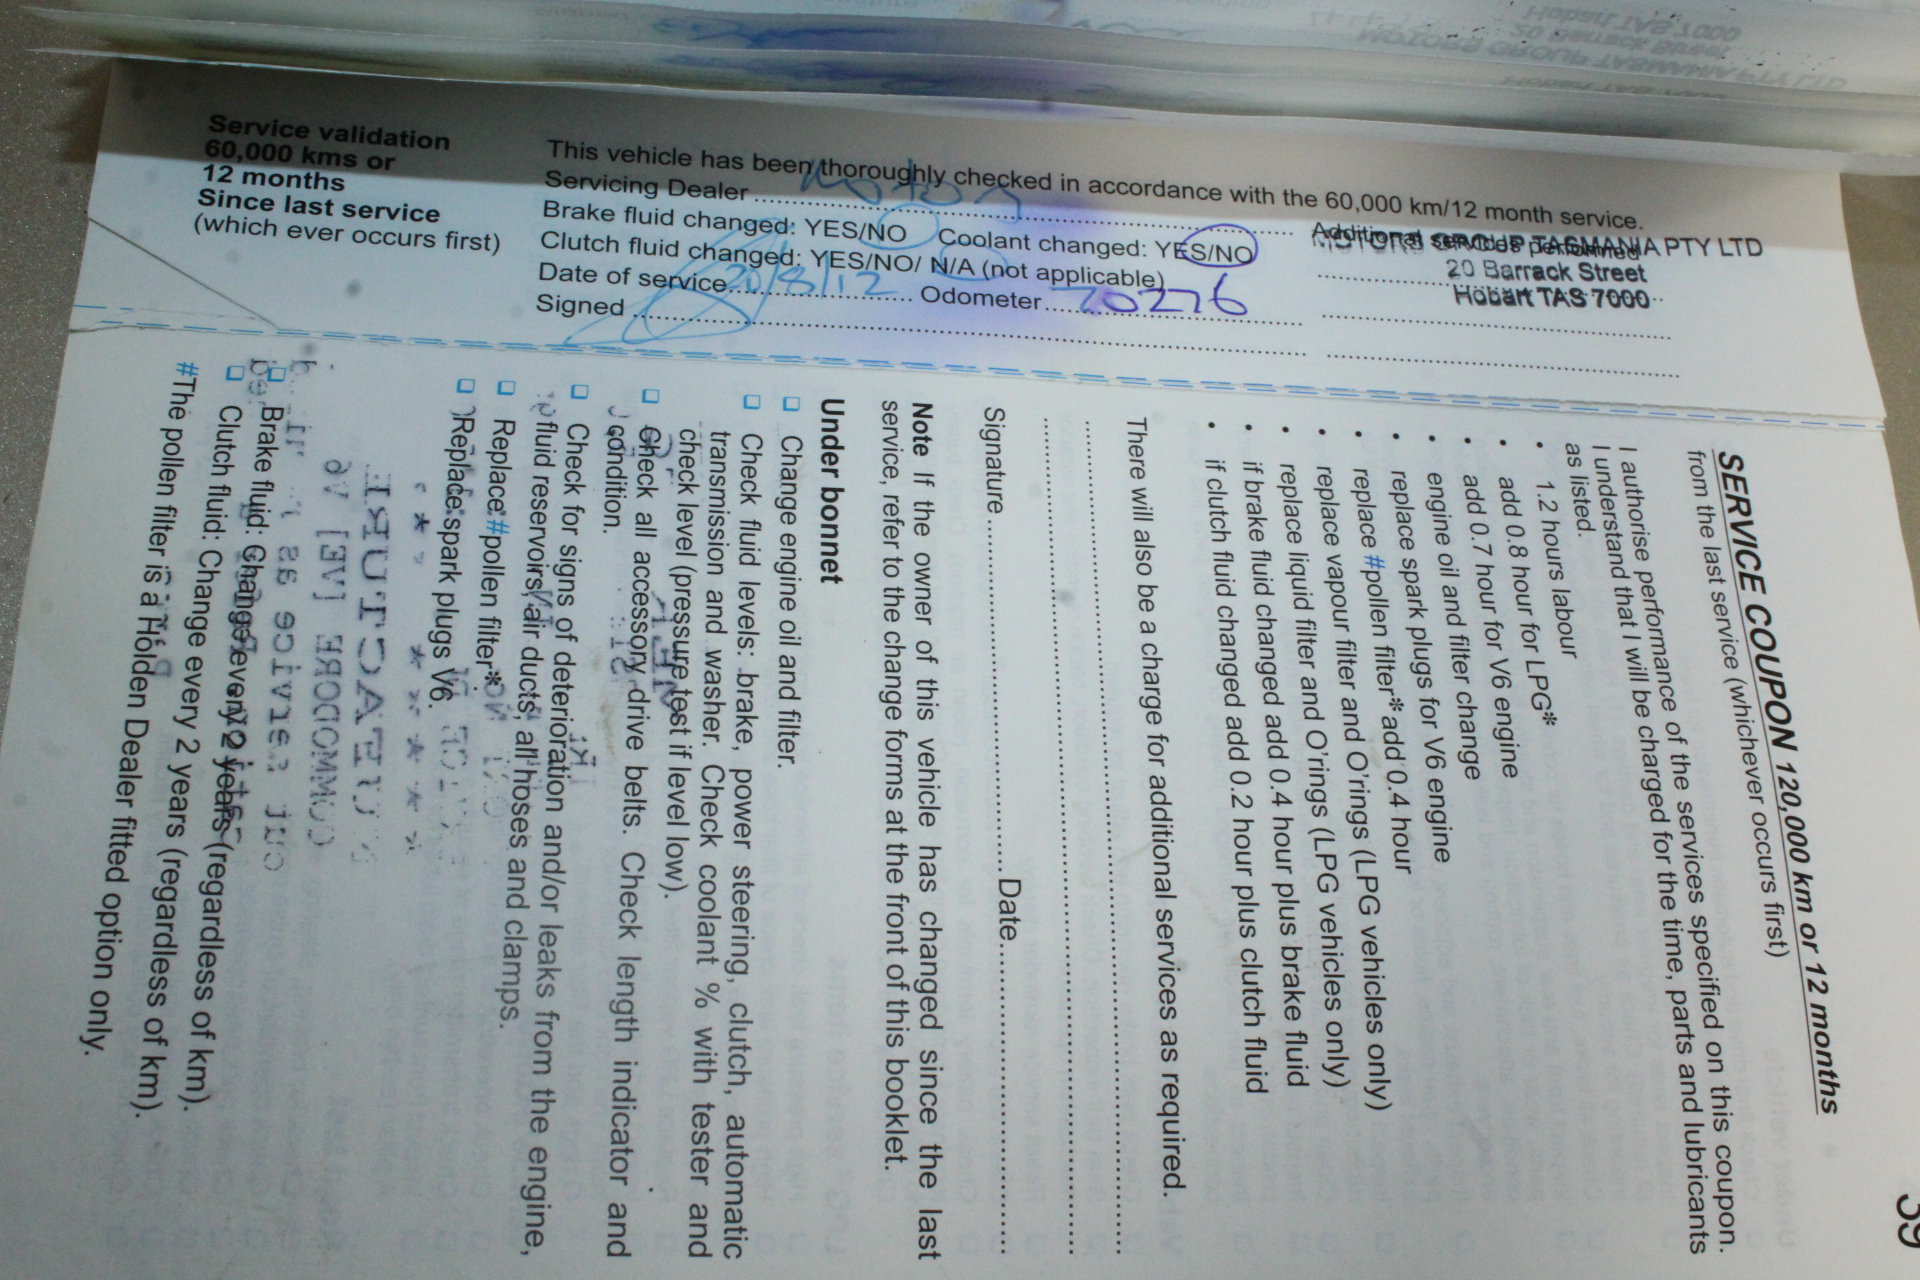 Service validation
60,000 kms or
12 months
Since last service
(which ever occurs first)
This vehicle has been thoroughly checked in accordance with the 60,000 km/12 month service.
Servicing Dealer Motors
Brake fluid changed: YES/NO Coolant changed: YES/NO
Clutch fluid changed: YES/NO/ N/A (not applicable)
Date of service 20/8/12 Odometer 70276
Signed
Additional services performed
MOTORS GROUP TASMANIA PTY LTD
20 Barrack Street
Hobart TAS 7000
39
SERVICE COUPON 120,000 km or 12 months
from the last service (whichever occurs first)
I authorise performance of the services specified on this coupon.
I understand that I will be charged for the time, parts and lubricants
as listed.
• 1.2 hours labour
• add 0.8 hour for LPG*
• add 0.7 hour for V6 engine
• engine oil and filter change
• replace spark plugs for V6 engine
• replace #pollen filter* add 0.4 hour
• replace vapour filter and O'rings (LPG vehicles only)
• replace liquid filter and O'rings (LPG vehicles only)
• if brake fluid changed add 0.4 hour plus brake fluid
• if clutch fluid changed add 0.2 hour plus clutch fluid
There will also be a charge for additional services as required.
Signature Date
Note If the owner of this vehicle has changed since the last
service, refer to the change forms at the front of this booklet.
Under bonnet
Change engine oil and filter.
Check fluid levels: brake, power steering, clutch, automatic
transmission and washer. Check coolant % with tester and
check level (pressure test if level low).
Check all accessory drive belts. Check length indicator and
condition.
Check for signs of deterioration and/or leaks from the engine,
fluid reservoirs, air ducts, all hoses and clamps.
Replace #pollen filter*.
Replace spark plugs V6.
Brake fluid: Change every 2 years (regardless of km).
Clutch fluid: Change every 2 years (regardless of km).
#The pollen filter is a Holden Dealer fitted option only.